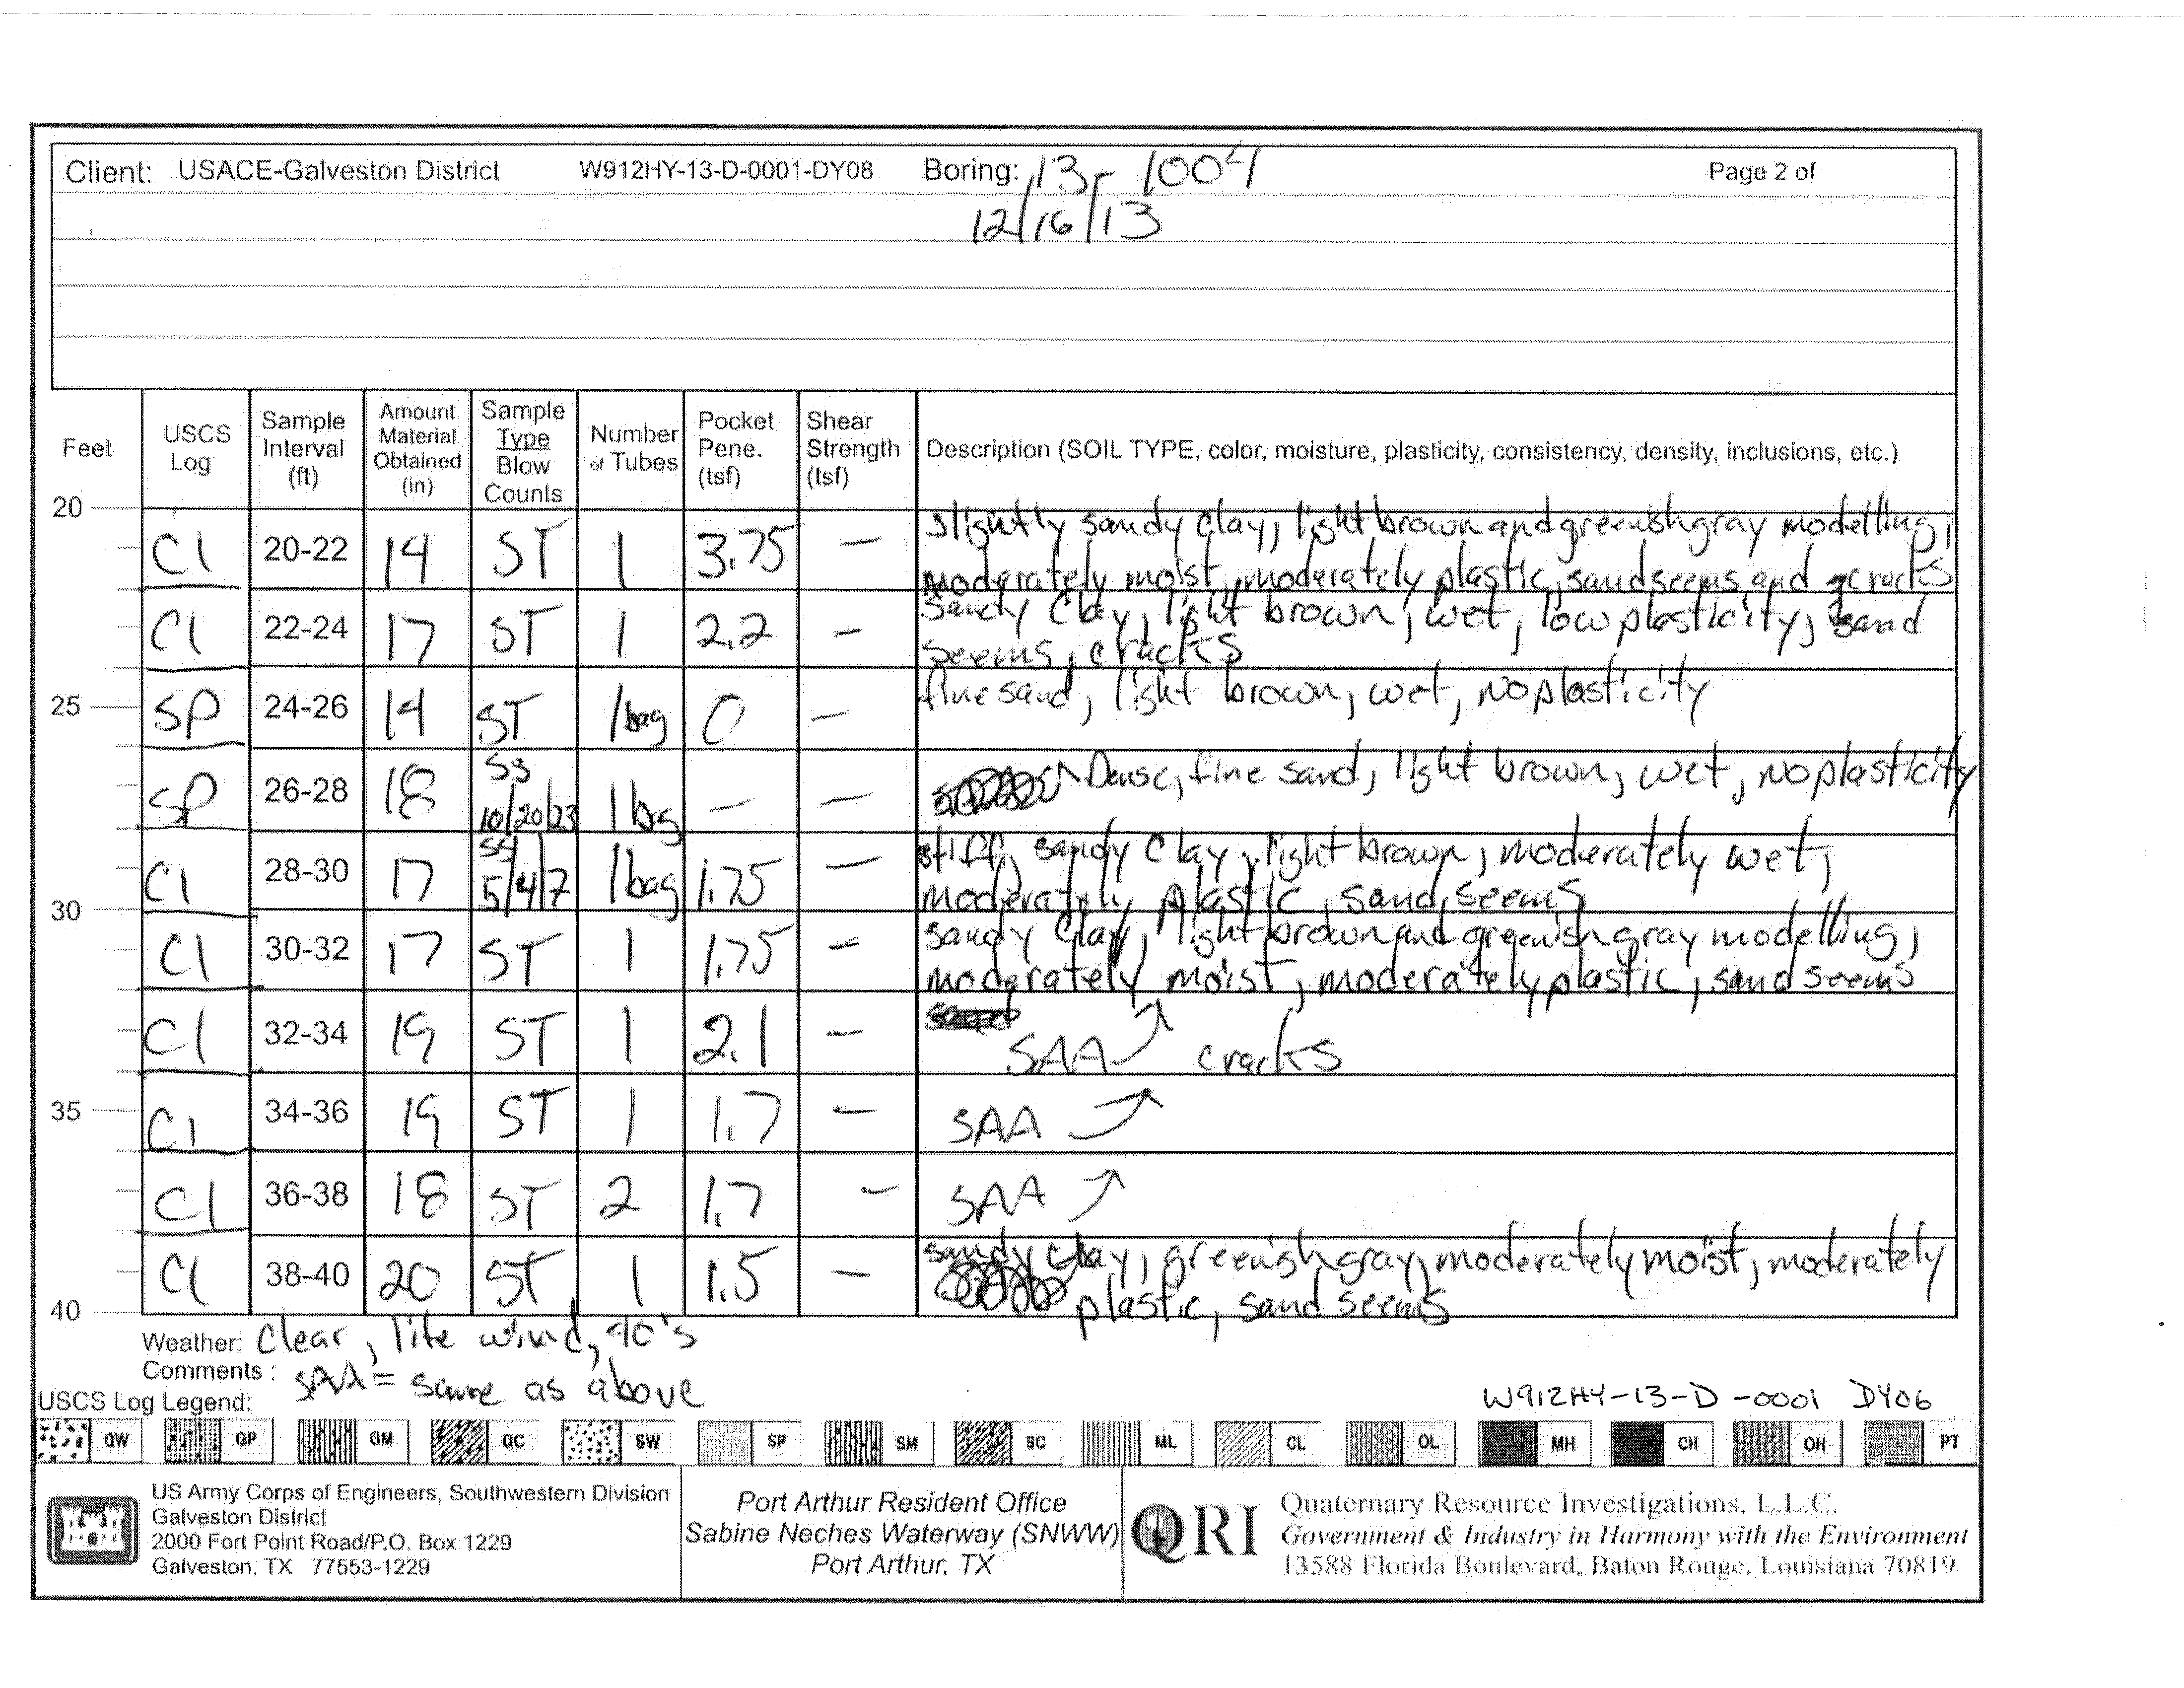 Client: USACE-Galveston District W912HY-13-D-0001-DY08 Boring: 13-1004 Page 2 of
12/16/13
Feet USCS Log Sample Interval (ft) Amount Material Obtained (in) Sample Type Blow Counts Number of Tubes Pocket Pene. (tsf) Shear Strength (tsf) Description (SOIL TYPE, color, moisture, plasticity, consistency, density, inclusions, etc.)
20
Cl 20-22 14 ST 1 3.75 – slightly sandy clay, light brown and greenish gray modelling,
moderately moist, moderately plastic, sand seems and cracks
Cl 22-24 17 ST 1 2.2 – Sandy Clay, light brown, wet, low plasticity, sand
seems, cracks
25 SP 24-26 14 ST 1 bag 0 – fine sand, light brown, wet, no plasticity
SP 26-28 18 SS 10/20/23 1 bag – – Dense, fine sand, light brown, wet, no plasticity
Cl 28-30 17 SS 5/4/7 1 bag 1.75 – stiff, sandy clay, light brown, moderately wet,
moderately plastic, sand seems
30
Cl 30-32 17 ST 1 1.75 – sandy clay, light brown and greenish gray modelling,
moderately moist, moderately plastic, sand seems
Cl 32-34 19 ST 1 2.1 – SAA cracks
35 Cl 34-36 19 ST 1 1.7 – SAA
Cl 36-38 18 ST 2 1.7 – SAA
Cl 38-40 20 ST 1 1.5 – sandy clay, greenish gray, moderately moist, moderately
plastic, sand seems
40
Weather: Clear, lite wind, 40's
Comments: SAA = same as above
USCS Log Legend: W912HY-13-D-0001 DY06
GW GP GM GC SW SP SM SC ML CL OL MH CH OH PT
US Army Corps of Engineers, Southwestern Division
Galveston District
2000 Fort Point Road/P.O. Box 1229
Galveston, TX 77553-1229
Port Arthur Resident Office
Sabine Neches Waterway (SNWW)
Port Arthur, TX
QRI
Quaternary Resource Investigations, L.L.C.
Government & Industry in Harmony with the Environment
13588 Florida Boulevard, Baton Rouge, Louisiana 70819